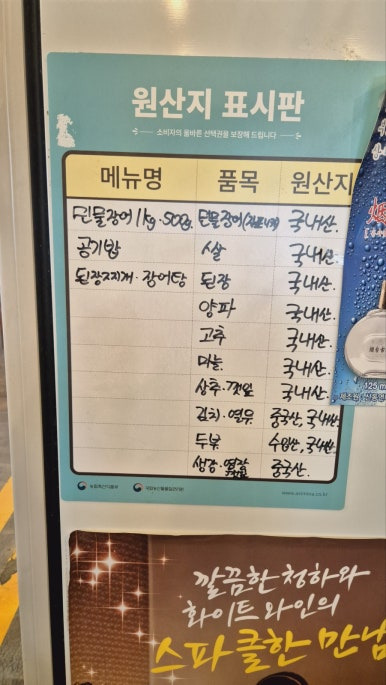 원산지 표시판
소비자의 올바른 선택권을 보장해 드립니다
메뉴명 품목 원산지
민물장어 1kg · 500g 민물장어 국내산
공기밥 쌀 국내산
된장찌개 · 장어탕 된장 국내산
양파 국내산
고추 국내산
마늘 국내산
상추 · 깻잎 국내산
김치 · 열무 중국산, 국내산
두부 수입산, 국내산
생강 중국산
농림축산식품부 국립농산물품질관리원
125 m
제조원
깔끔한 청하와
화이트와인의
스파클한 만남